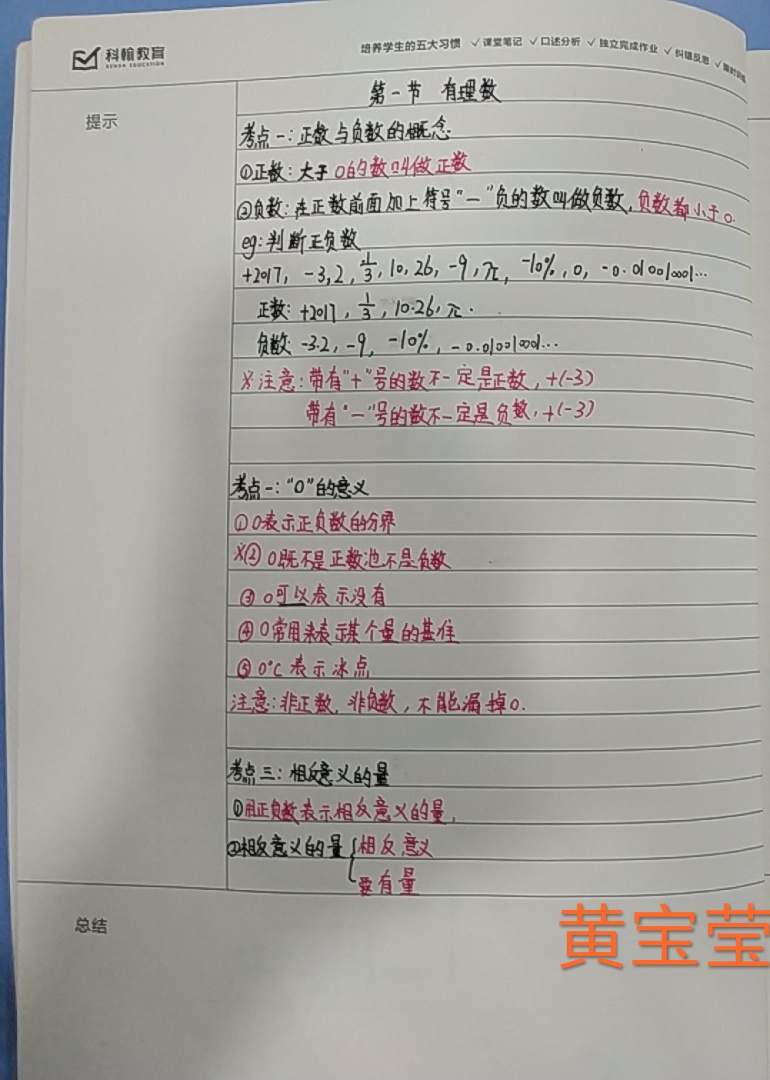 科翰教育
KEHAN EDUCATION
培养学生的五大习惯 √课堂笔记 √口述分析 √独立完成作业 √纠错反思 √限时训练
提示
第一节 有理数
考点一:正数与负数的概念
①正数:大于0的数叫做正数
②负数:在正数前面加上符号"—"负的数叫做负数,负数都小于0.
eg:判断正负数
+2017, -3,2, 1/3, 10,26, -9, π, -10%, 0, -0.010010001…
正数: +2017, 1/3, 10.26, π.
负数: -3.2, -9, -10%, -0.010010001…
※注意:带有"+"号的数不一定是正数, +(-3)
带有"—"号的数不一定是负数, +(-3)
考点一:"0"的意义
①0表示正负数的分界
※② 0既不是正数也不是负数
③ 0可以表示没有
④ 0常用来表示某个量的基准
⑤ 0℃ 表示冰点
注意:非正数,非负数,不能漏掉0.
考点三:相反意义的量
①用正负数表示相反意义的量,
②相反意义的量{相反意义
要有量
总结
黄宝莹